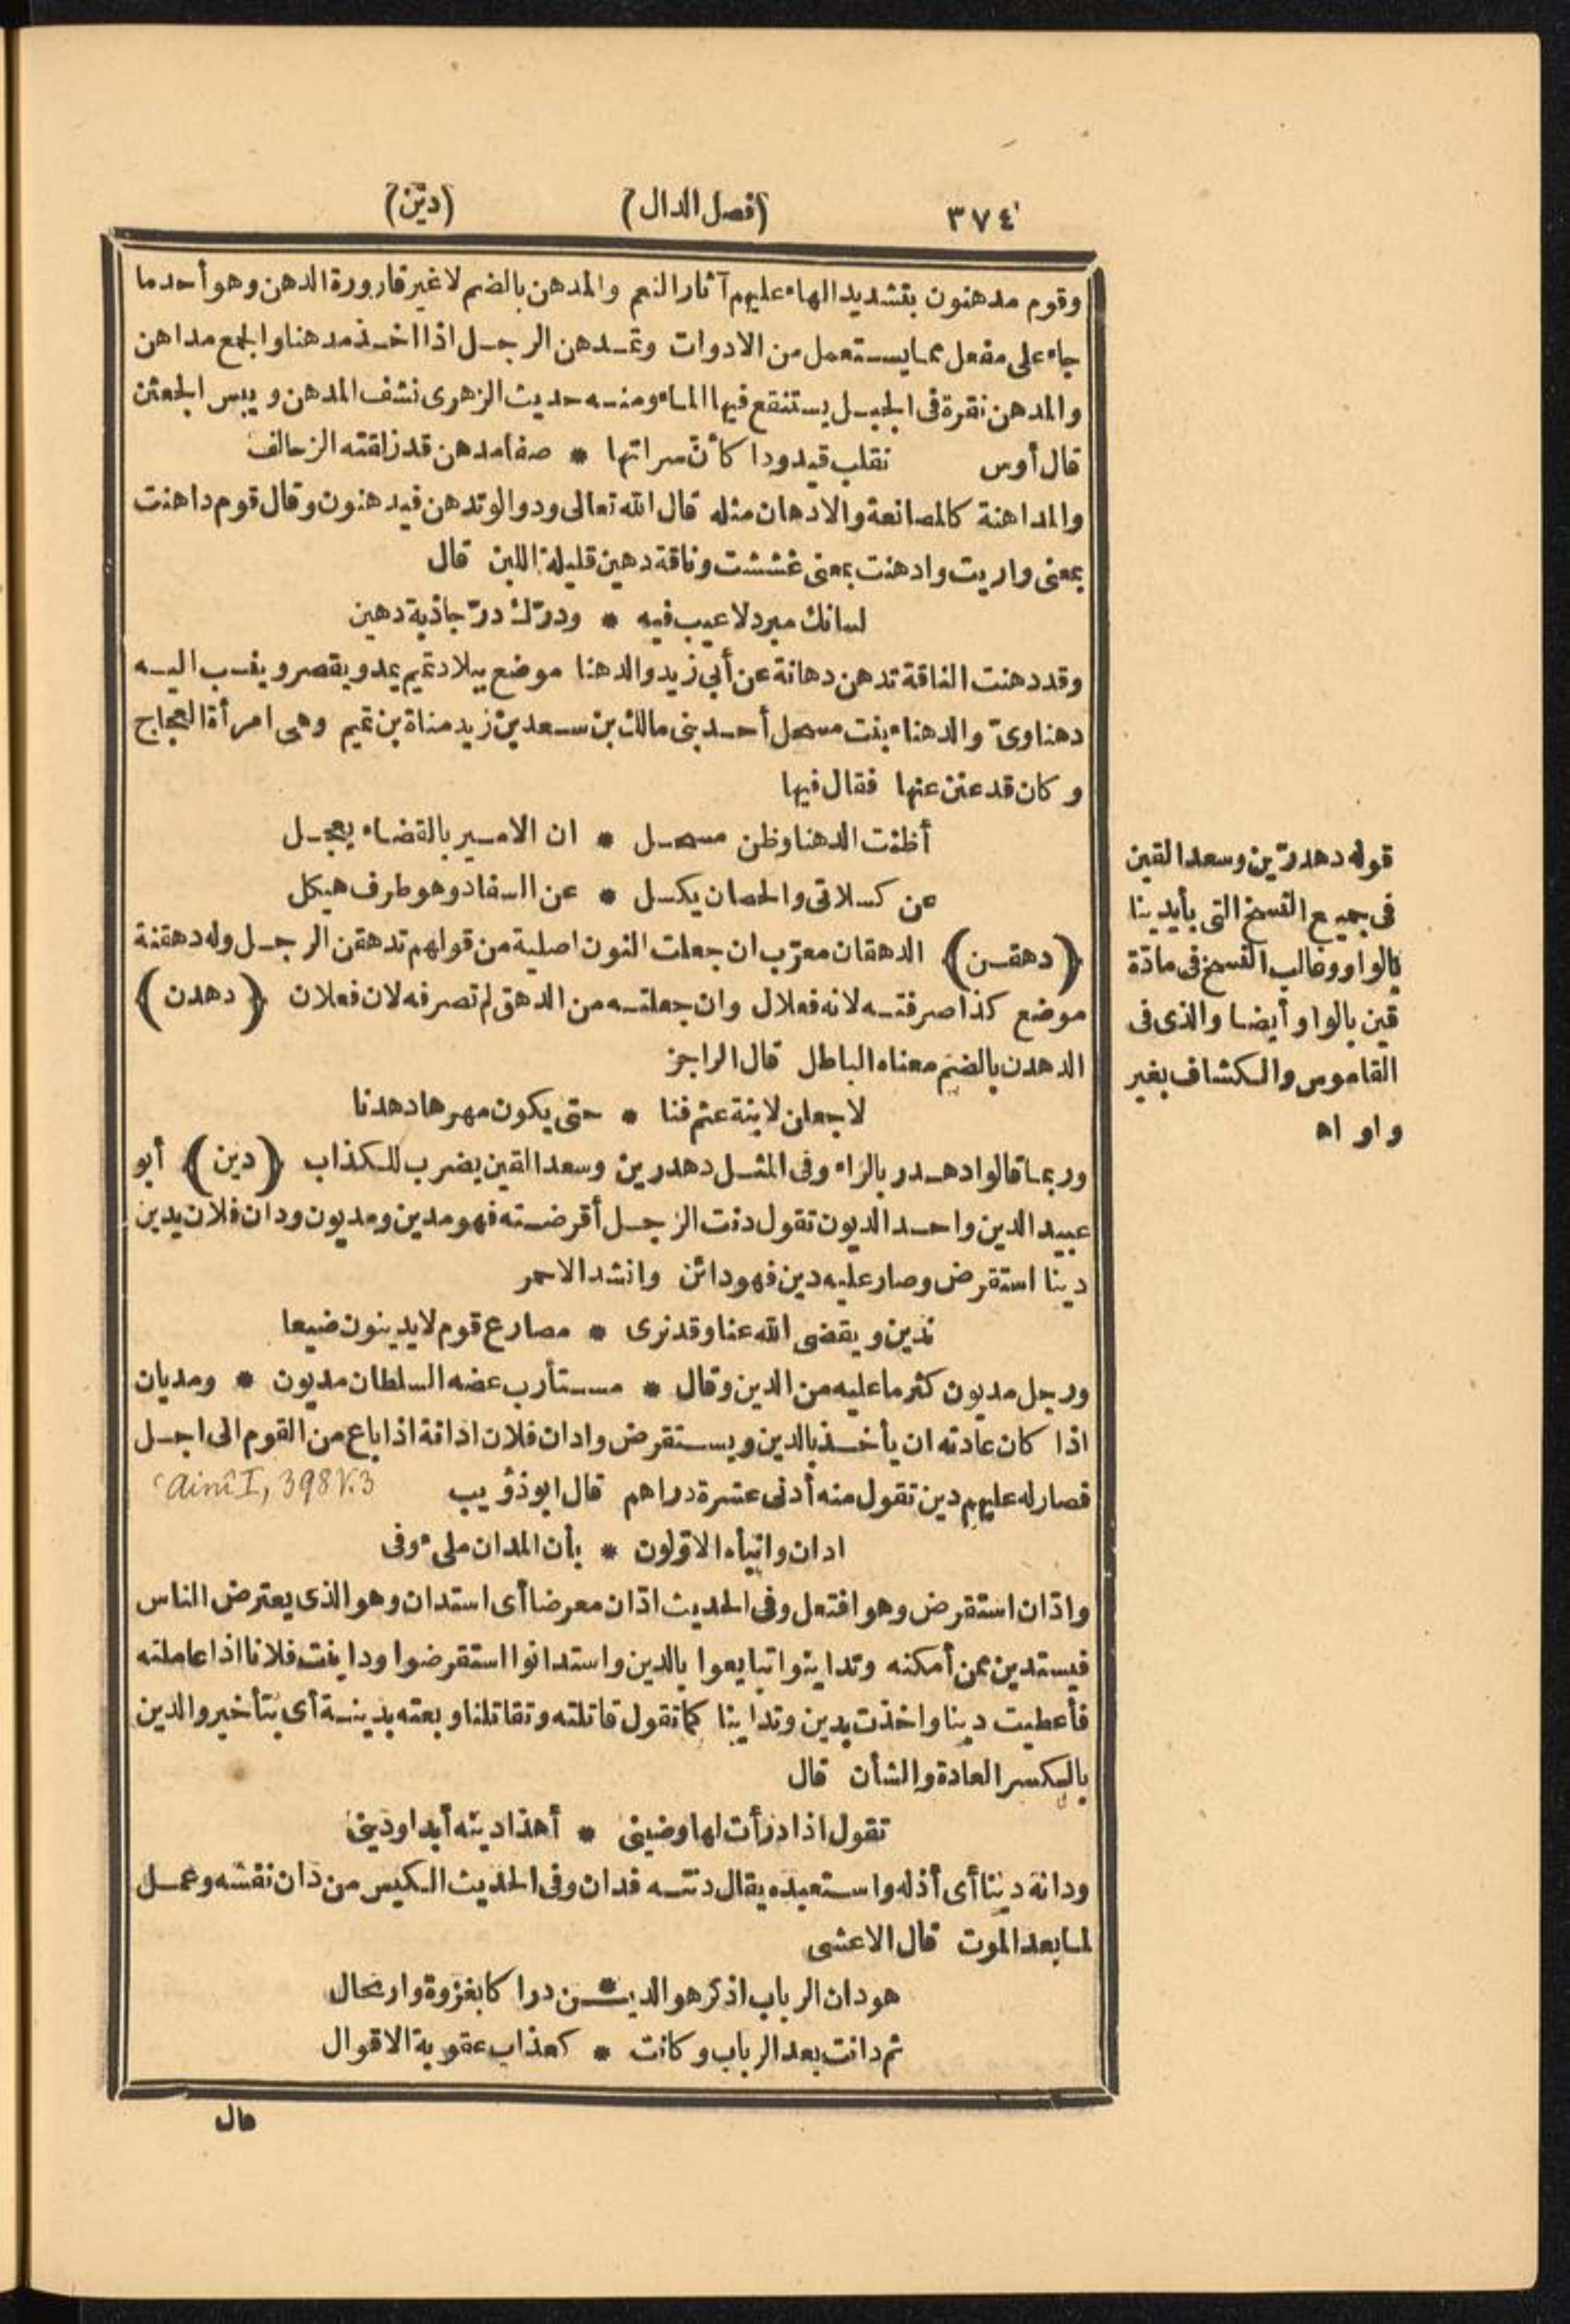 ٣٧٤ (فصل الدال) (دين)
وقوم مدهنون بتشديد الهاء عليهم آثار النعم والمدهن بالضم لا غير قارورة الدهن وهو أحد ما
جاء على مفعل مما يستعمل من الادوات وتمدهن الرجل اذا اخذ مدهنا والجمع مداهن
والمدهن نقرة فى الجبل يستنقع فيها الماء ومنه حديث الزهرى نشف المدهن ويبس الجعثن
قال أوس نقلب قيدودا كأن سراتها * صفا مدهن قد زلقته الزحالف
والمداهنة كالمصانعة والادهان مثله قال الله تعالى ودوا لو تدهن فيدهنون وقال قوم داهنت
بمعنى واريت وادهنت بمعنى غششت وناقة دهين قليلة اللبن قال
لسانك مبرد لا عيب فيه * ودرّك درّ جاذبة دهين
وقد دهنت الناقة تدهن دهانة عن أبى زيد والدهنا موضع ببلاد تميم يمد ويقصر وينسب اليه
دهناوىّ والدهناء بنت مسحل أحد بنى مالك بن سعد بن زيد مناة بن تميم وهى امرأة العجاج
وكان قد عنن عنها فقال فيها
أظنت الدهنا وظن مسحل * ان الامير بالقضاء يعجل
عن كسلاتى والحصان يكسل * عن السفاد وهو طرف هيكل
(دهقن) الدهقان معرّب ان جعلت النون اصلية من قولهم تدهقن الرجل وله دهقنة
موضع كذا صرفته لانه فعلال وان جعلته من الدهق لم تصرفه لان فعلان (دهدن)
الدهدن بالضم معناه الباطل قال الراجز
لاجعلن لابنة عثم فنا * حتى يكون مهرها دهدنا
وربما قالوا دهدر بالراء وفى المثل دهدرين وسعد القين يضرب للكذاب (دين) أبو
عبيد الدين واحد الديون تقول دنت الرجل أقرضته فهو مدين ومديون ودان فلان يدين
دينا استقرض وصار عليه دين فهو دائن وانشد الاحمر
ندين ويقضى الله عنا وقد نرى * مصارع قوم لا يدينون ضيعا
ورجل مديون كثر ما عليه من الدين وقال * مستأرب عضه السلطان مديون * ومديان
اذا كان عادته ان يأخذ بالدين ويستقرض وادان فلان ادانة اذا باع من القوم الى اجل
فصار له عليهم دين تقول منه أدنى عشرة دراهم قال ابو ذؤيب ʿAinî I, 398 V. 3
ادان وانبأه الاوّلون * بأن المدان ملىء وفى
وادّان استقرض وهو افتعل وفى الحديث ادّان معرضا أى استدان وهو الذى يعترض الناس
فيستدين ممن أمكنه وتداينوا تبايعوا بالدين واستدانوا استقرضوا وداينت فلانا اذا عاملته
فأعطيت دينا واخذت بدين وتداينا كما تقول قاتلته وتقاتلنا وبعته بدينة أى بتأخير والدين
بالكسر العادة والشأن قال
تقول اذا درأت لها وضينى * أهذا دينه أبدا ودينى
ودانه دينا أى أذله واستعبده يقال دنته فدان وفى الحديث الكيس من دان نفسه وعمل
لما بعد الموت قال الاعشى
هو دان الرباب اذ كرهوا الدي*ن دراكا بغزوة وارتحال
ثم دانت بعد الرباب وكانت * كعذاب عقوبة الاقوال
قال
قوله دهدرّين وسعد القين
فى جميع النسخ التى بأيدينا
بالواو وغالب النسخ فى مادّة
قين بالواو أيضا والذى فى
القاموس والكشاف بغير
واو اه